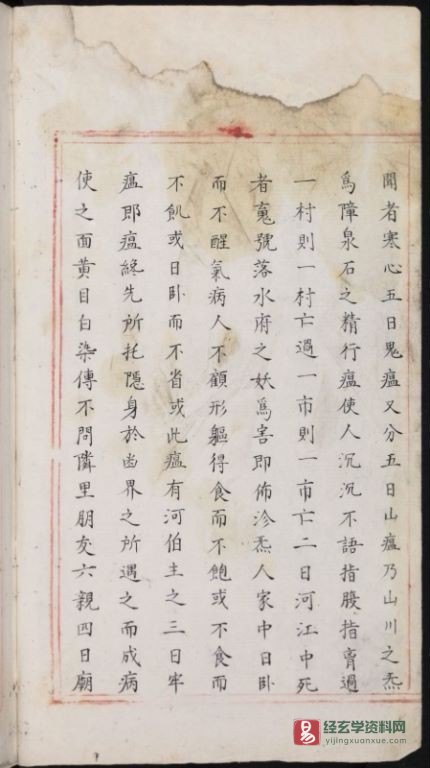 聞者寒心五曰鬼瘟又分五曰山瘟乃山川之炁
爲障泉石之精行瘟使人沉沉不語指腹指膏過
一村則一村亡過一市則一市亡二曰河江中死
者冤號落水府之妖爲害即佈沴炁人家中日臥
而不醒氣病人不顧形軀得食而不飽或不食而
不飢或日臥而不省或此瘟有河伯主之三曰牢
瘟即瘟終先所托隱身於凾界之所遇之而成病
使之面黃目白染傳不問隣里朋友六親四曰廟
经玄学资料网
yijingxuanxue.com